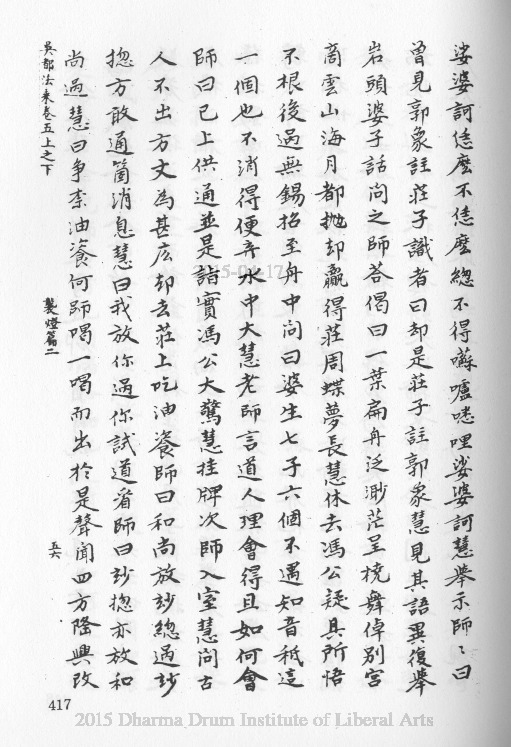 娑婆訶恁麼不恁麼總不得㘕嚧㗭哩娑婆訶慧舉示師〻曰
曾見郭象註莊子識者曰却是莊子註郭象慧見其語異復舉
岩頭婆子話問之師荅偈曰一葉扁舟泛渺茫呈橈舞棹別宮
商雲山海月都抛却贏得莊周蝶夢長慧休去馮公疑其所悟
不根後過無錫招至舟中問曰婆生七子六個不遇知音秪這
一個也不消得便弃水中大慧老師言道人理會得且如何會
師曰已上供通並是詣實馮公大驚慧挂牌次師入室慧問古
人不出方丈為甚庅却去莊上吃油餈師曰和尚放玅總過玅
揔方敢通箇消息慧曰我放你過你試道看師曰玅揔亦放和
尚過慧曰争柰油餈何師喝一喝而出於是聲聞四方隆興改
吳都法乗卷五上之下
襲燈篇二
五六
417
2015 Dharma Drum Institute of Liberal Arts